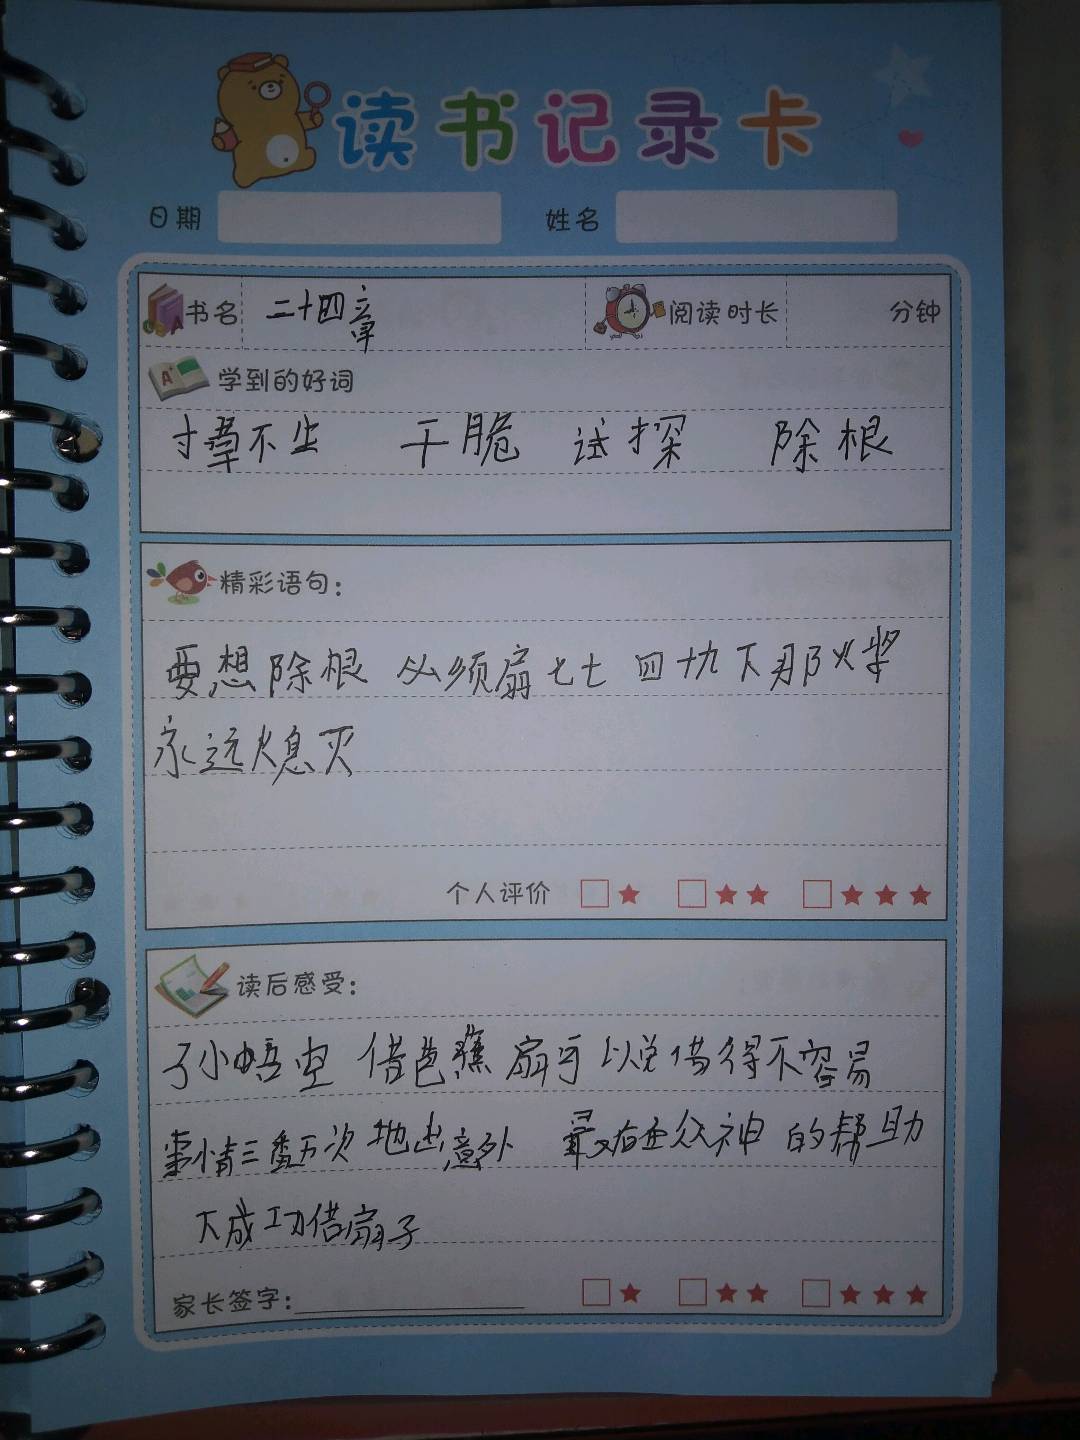 读书记录卡
日期 姓名
书名 二十四章 阅读时长 分钟
学到的好词
不尘 干脆 试探 除根
精彩语句：
要想除根 必须扇七七四十九下那火
永远熄灭
个人评价 □★ □★★ □★★★
读后感受：
小悟空 借芭蕉扇可以说借得不容易
事情三番五次地出意外 最后在众神的帮助
下成功借扇子
家长签字： □★ □★★ □★★★